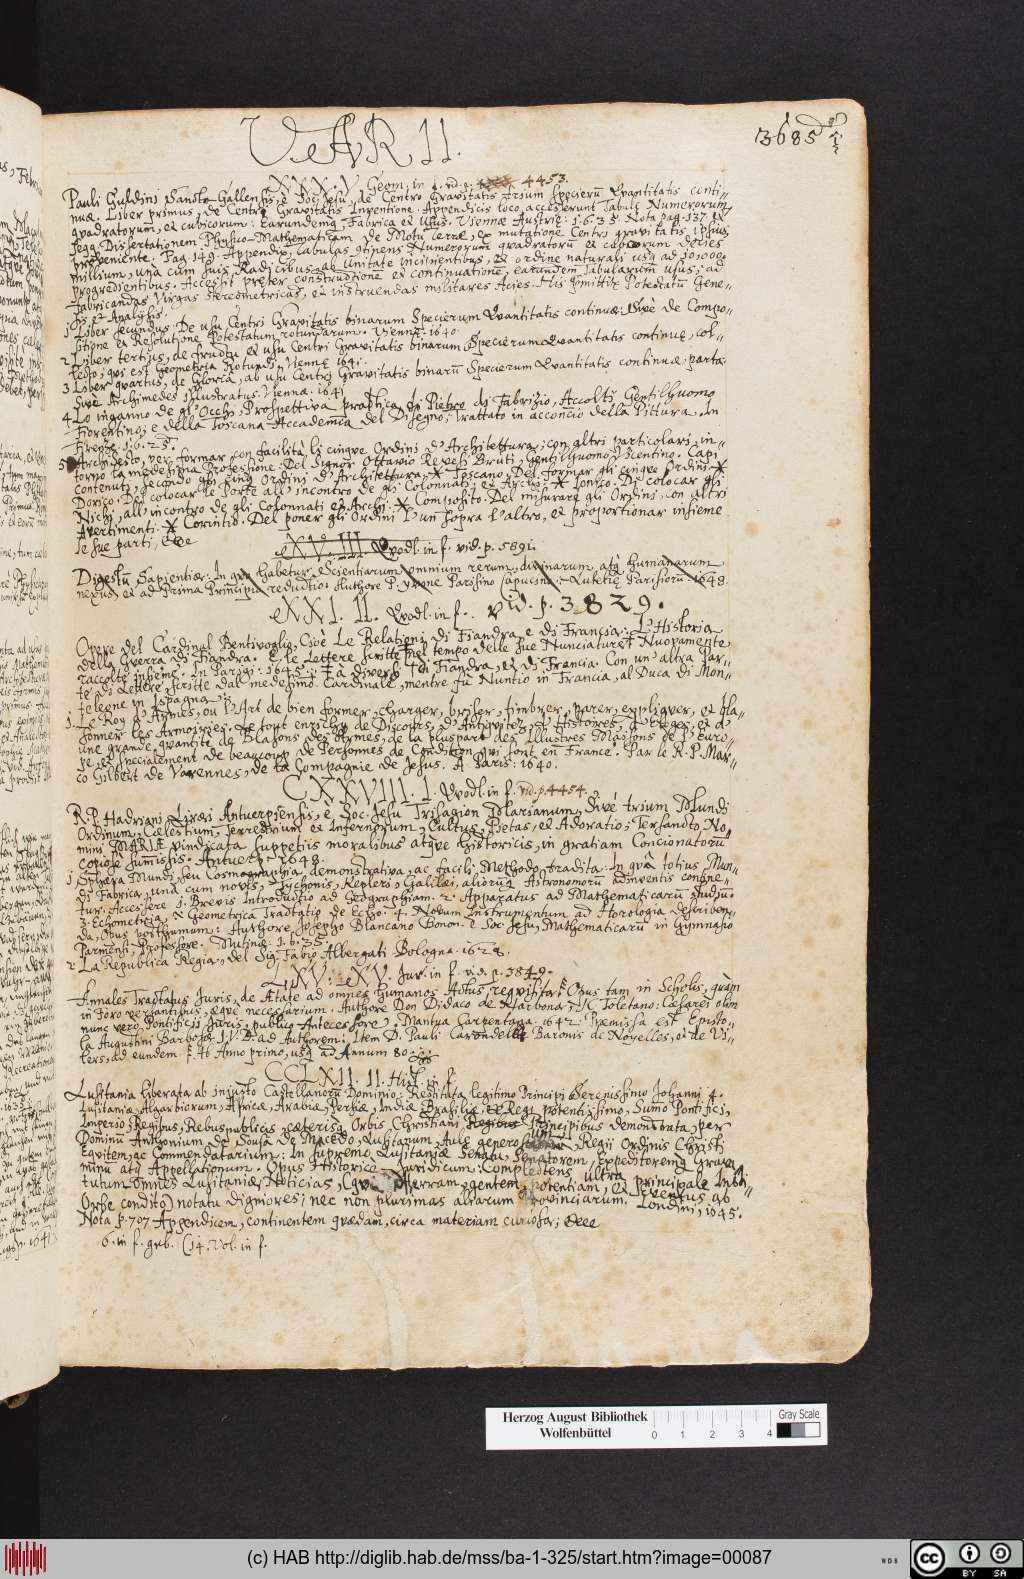 VARII.
3685
XXX.V. Geom: in f. vid. p. 4453.
Pauli Guldini Sancto Gallensis, è Soc. Jesu, de Centro Gravitatis trium Specierũ Quantitatis conti-
nuæ: Liber primus, de Centri Gravitatis Inventione. Appendicis loco accesserunt Tabulę Numerorum
quadratorum, et cubicorum: Earundemq̃ Fabrica et Usus. Viennæ Austriæ: 1.6.35. Nota pag. 137. et
seqq. Dissertationem Physico-Mathematicam de Motu Terræ, ex mutatione Centri gravitatis ipsius
proveniente. Pag. 149. Appendix, Tabulas Numerorum quadratorũ et cubicorum decies
millium, una cum suis Radicibus, ab Unitate incipientibus, et ordine naturali usq ad 10,000.
progredientibus. Accessit præter constructione et continuatione, earundem Tabularum usus; ad
fabricandas Virgas Stereometricas, et instruendas militares Acies. His committit Potestatũ Gene-
sis et Analysis.
1 Liber secundus, De Usu Centri Gravitatis binarum Specierum Quantitatis continuæ: Sivè de Compo-
sitione et Resolutione Potestatum rotundarum. Viennæ. 1640.
2 Liber tertius, de fructu ex usu Centri Gravitatis binarum Specierum Quantitatis continuæ, col-
lecto; qui est Geometria Rotundi. Viennę 1641.
3 Liber quartus, de Gloria, ab usu Centri Gravitatis binarũ Specierum Quantitatis continuæ parta:
Sivè Archimedes illustratus. Viennæ. 1641
4 Lo inganno de gl' Occhi, Prospettiva pratica di Pietro di Fabrizio, Accolti Gentilhuomo
Fiorentino; e della Toscana Accademia del Disegno; Trattato in acconcio della Pittura. In
Firenze. 1.6.25.
5 Archidesto, per formar con facilità li cinque Ordini d' Architettura; con altri particolari in-
torno la medesima Professione. Del Signor Ottavio Revesi Bruti, Gentilhuomo Vicentino. Capi
contenuti, secondo gli cinq Ordini d' Architettura; * Toscano. Del formar gli cinque Ordini. *
Dorico. Del colocar le Porte all' incontro de gli Colonnati et Archi. * Ionico. Di colocar gli
Nichi, all' incontro de gli Colonnati et Archi. * Composito. Del misurare gli Ordini, con altri
Avertimenti. * Corintio. Del poner gli Ordini l'un sopra l'altro, et proportionar insieme
le sue parti, &c
XV. III. Quodl. in f. vid. p. 5891.
Digestũ Sapientiæ: In quo habetur Scientiarum omnium rerum, divinarum, atq humanarum
nexus, et ad Prima Principia reductio. Authore P. Yvone Parisino Capucino. Lutetiæ Parisiorũ. 1648.
XXI. II. Quodl. in f. vid. p. 3829.
Opere del Cardinal Bentivoglio, Cioè Le Relationi di Fiandra, e di Francia: L'Historia
della Guerra di Fiandra. E le Lettere scritte nel tempo delle sue Nunciature. Nuovamente
raccolte insieme. In Parigi: 1645. A diversi di Fiandra, et di Francia. Con un' altra Par-
te di Lettere, scritte dal medesimo Cardinale, mentre fù Nuntio in Francia, al Duca di Mon-
teleone in Ispagna.
1 Le Roy d' Armes, ou l'Art de bien former, charger, briser, timbrer, parer, expliquer, et bla-
sonner les Armoiries. Le tout enrichy de Discours, d' Antiquitez, d' Histoires, d' Eloges, et d'
une grande quantité de Blasons des Armes, de la pluspart des Illustres Maisons de l' Euro-
pe, et specialement de beaucoup de Personnes de Condition, qui sont en France. Par le R. P. Mar-
co Gilbert de Varennes, de la Compagnie de Jesus. A Paris: 1640.
CXXVIII. I. Quodl. in f. vid. p. 4454.
R. P. Hadriani Lyræi Antuerpiensis, è Soc. Jesu Trisagion Marianum, Sivè trium Mundi
Ordinum, Cælestium, Terrestrium et Infernorum, Cultus, Pietas, et Adoratio; Tersancto No-
mini MARIÆ vindicata suppetiis moralibus atque historicis, in gratiam Concionatorũ
copiosè summissis. Antuerp: 1648.
1 Sphæra Mundi, seu Cosmographia demonstrativa, ac facili Methodo tradita. In quâ totius Mun-
di Fabrica, unà cum novis, Tychonis, Kepleri, Galilæi, aliorũq Astronomorũ Adinventis contine-
tur. Accessere 1. Brevis Introductio ad Geographiam. 2. Apparatus ad Mathematicarũ studiũ.
3. Echometria, et Geometrica Tractatio de Echo. 4. Novum Instrumentum ad Horologia describen-
da, Opus posthumum: Authore Josepho Blancano Bonon. è Soc. Jesu, Mathematicarũ in Gymnasio
Parmensi, Professore. Mutinæ. 1.6.35.
2 La Republica Regia, del Sig. Fabio Albergati Bologna. 1627.
LXV: XV. Jur. in f. vid. p. 3849.
Annales Tractatus Juris, de Ætate ad omnes humanos Actus requisita: Opus tam in Scholis, quàm
in Foro versantibus, æque necessarium. Authore Don Didaco de Narbona, JC Toletano. Cæsareo olim
nunc verò Pontificii Juris, publico Antecessore. Mantuæ Carpentanæ. 1642. Præmissa est Episto-
la Augustini Barbosæ J. V. D. ad Authorem: Item D. Pauli Carondelet Baronis de Noyelles, et de Vi-
lers, ad eundem. Ab Anno primo, usq ad Annum 80.
CCLXII. II. Hist. in f.
Lusitania liberata ab injusto Castellanorũ Dominio: Restituta legitimo Principi Serenissimo Johanni 4.
Lusitaniæ, Algarbiorum, Africæ, Arabiæ, Persiæ, Indiæ, Brasiliæ, et Regi potentissimo, Sumo Pontifici,
Imperio, Regibus, Rebuspublicis, ceterisq Orbis Christiani Principibus demonstrata, per
Dominũ Anthonium de Sousa de Macedo, Lusitanum, Aulæ generosum, Regii Ordinis Christi
Equitem, ac Commendatarium: In supremo Lusitaniæ Senatu Senatorem, Expeditoremq Grava-
minũ atq Appellationum. Opus Historico Juridicum: Complectens ultra principale Insti-
tutum omnes Lusitaniæ Noticias, Terram, gentem, potentiam, et Eventus ab
Orbe condito notatu digniores; nec non plurimas aliarum Provinciarum. Londini, 1645.
Nota p. 707 Appendicem, continentem quædam, circa materiam curiosa; &c
6. in f. geb. (14. Vol. in f.
Herzog August Bibliothek
Wolfenbüttel
0 1 2 3 4
Gray Scale
(c) HAB http://diglib.hab.de/mss/ba-1-325/start.htm?image=00087
WDB
cc BY SA